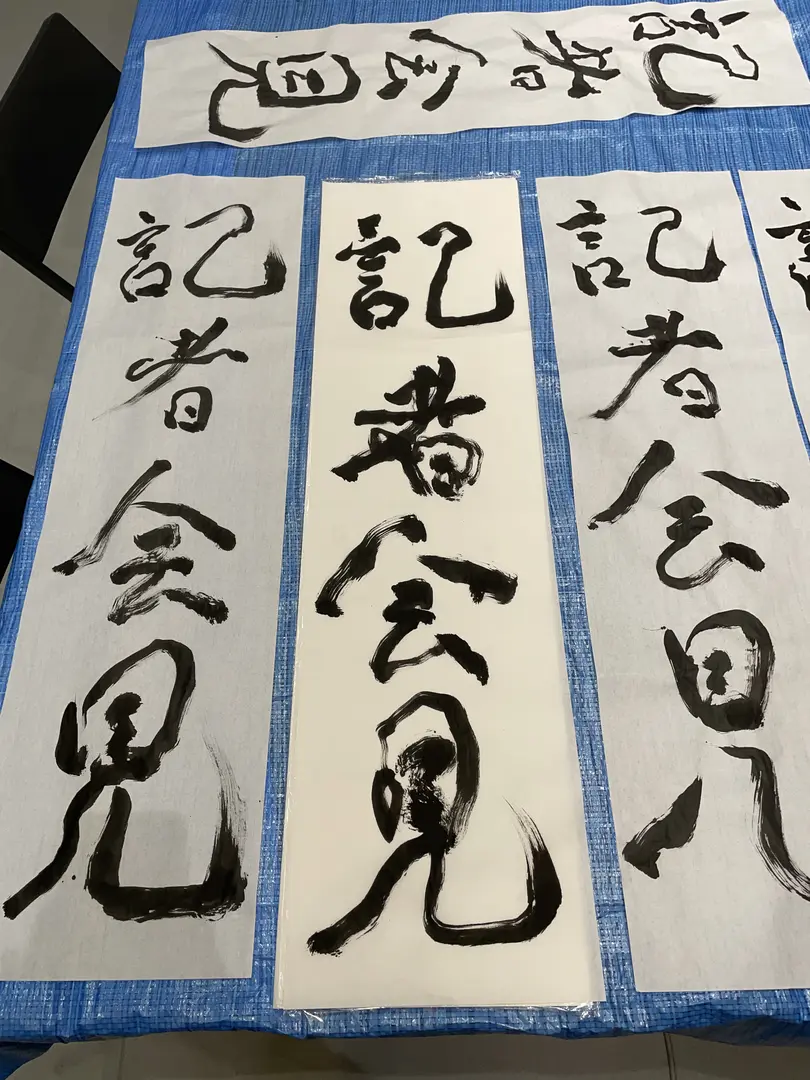 記者会見
記者会見
記者会見
記者会見